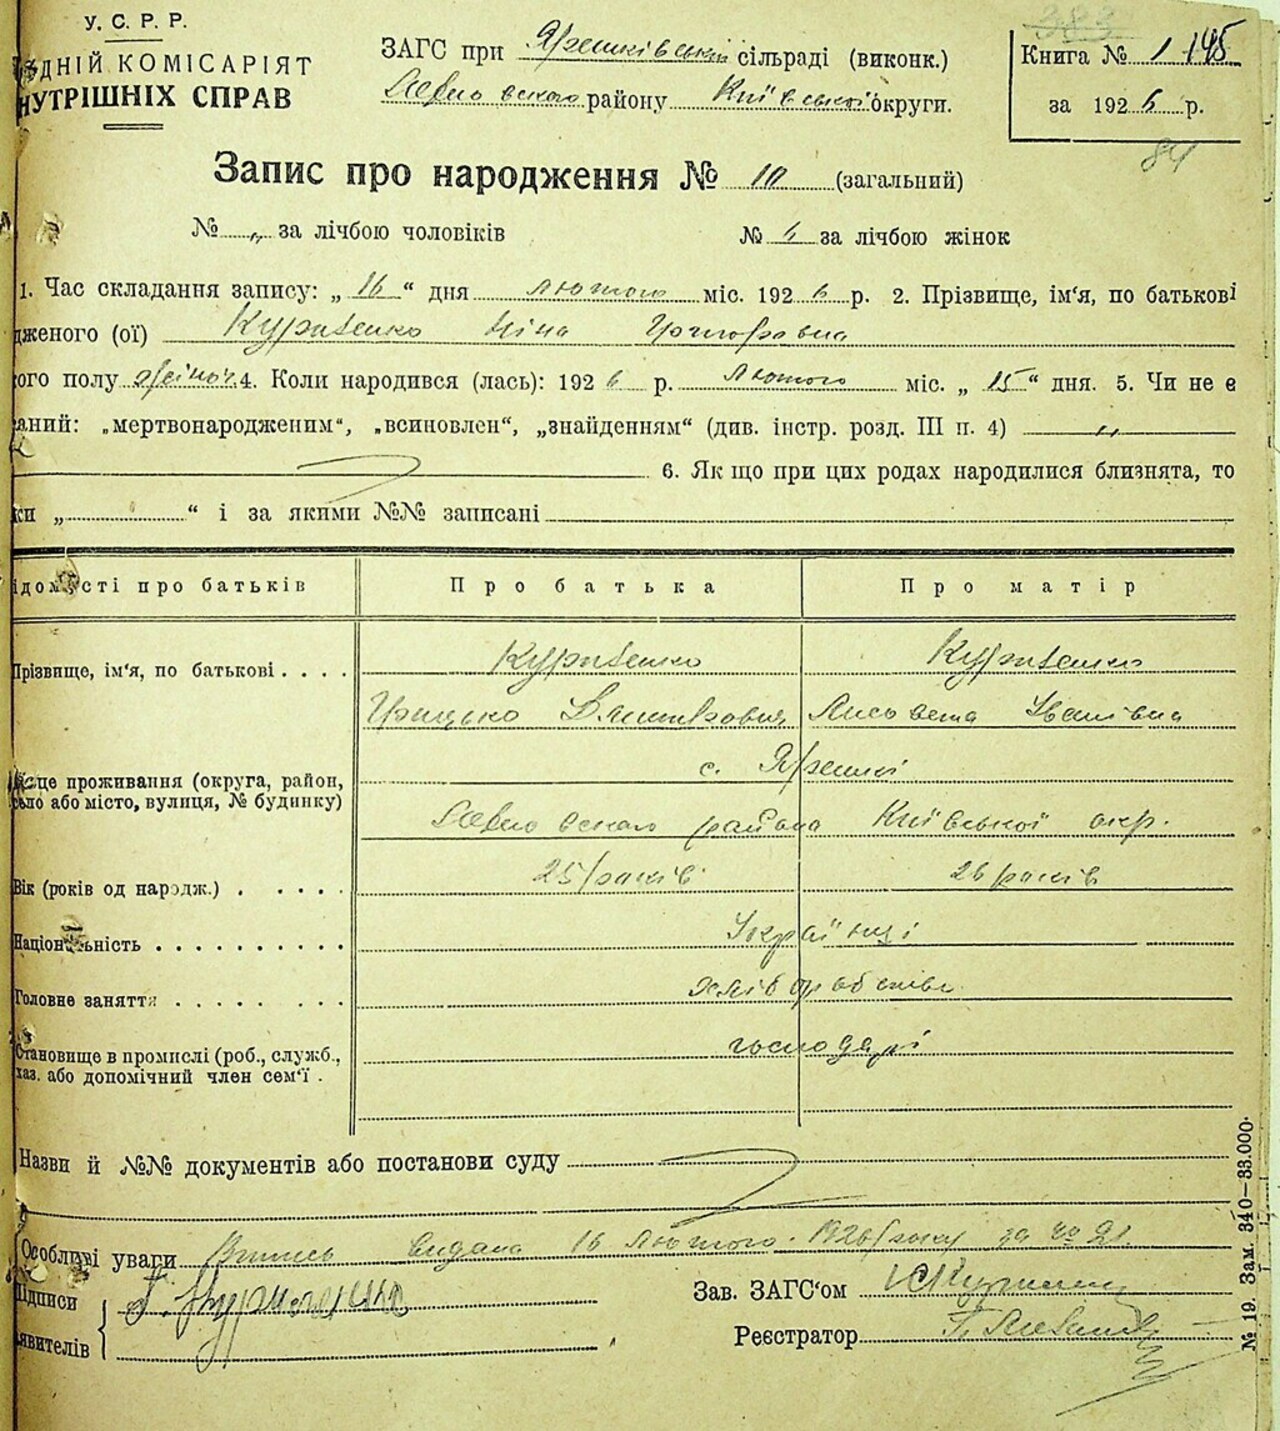 У. С. Р. Р.
ДНІЙ КОМІСАРІЯТ
НУТРІШНІХ СПРАВ
ЗАГС при Ярошківській сільраді (виконк.)
району Київської округи.
383
Книга № 1 145
за 1926 р.
84
Запис про народження № 10 (загальний)
№ „ за лічбою чоловіків № 6 за лічбою жінок
1. Час складання запису: „16“ дня лютого міс. 1926 р. 2. Прізвище, ім'я, по батькові
дженого (ої) Ніна
ого полу жіноч. 4. Коли народився (лась): 1926 р. лютого міс. „15“ дня. 5. Чи не є
аний: „мертвонародженим“, „всиновлен“, „знайденням“ (див. інстр. розд. III п. 4) „
6. Як що при цих родах народилися близнята, то
ки „ “ і за якими №№ записані
ідомості про батьків Про батька Про матір
Прізвище, ім'я, по батькові
Грицько Дмитрович Лисовета Іванівна
це проживання (округа, район, с.
ело або місто, вулиця, № будинку)
района Київської окр.
Вік (років од народж.) 25 років 26 років
Національність Українці
Головне заняття хлібороб
Становище в промислі (роб., служб., господарі
хаз. або допомічний член сем'ї .
Назви й №№ документів або постанови суду
Особливі уваги Випись видана 16 лютого 1926 року за № 21.
ідписи Зав. ЗАГС'ом
явителів Реєстратор
№ 19. Зам. 340—33.000.